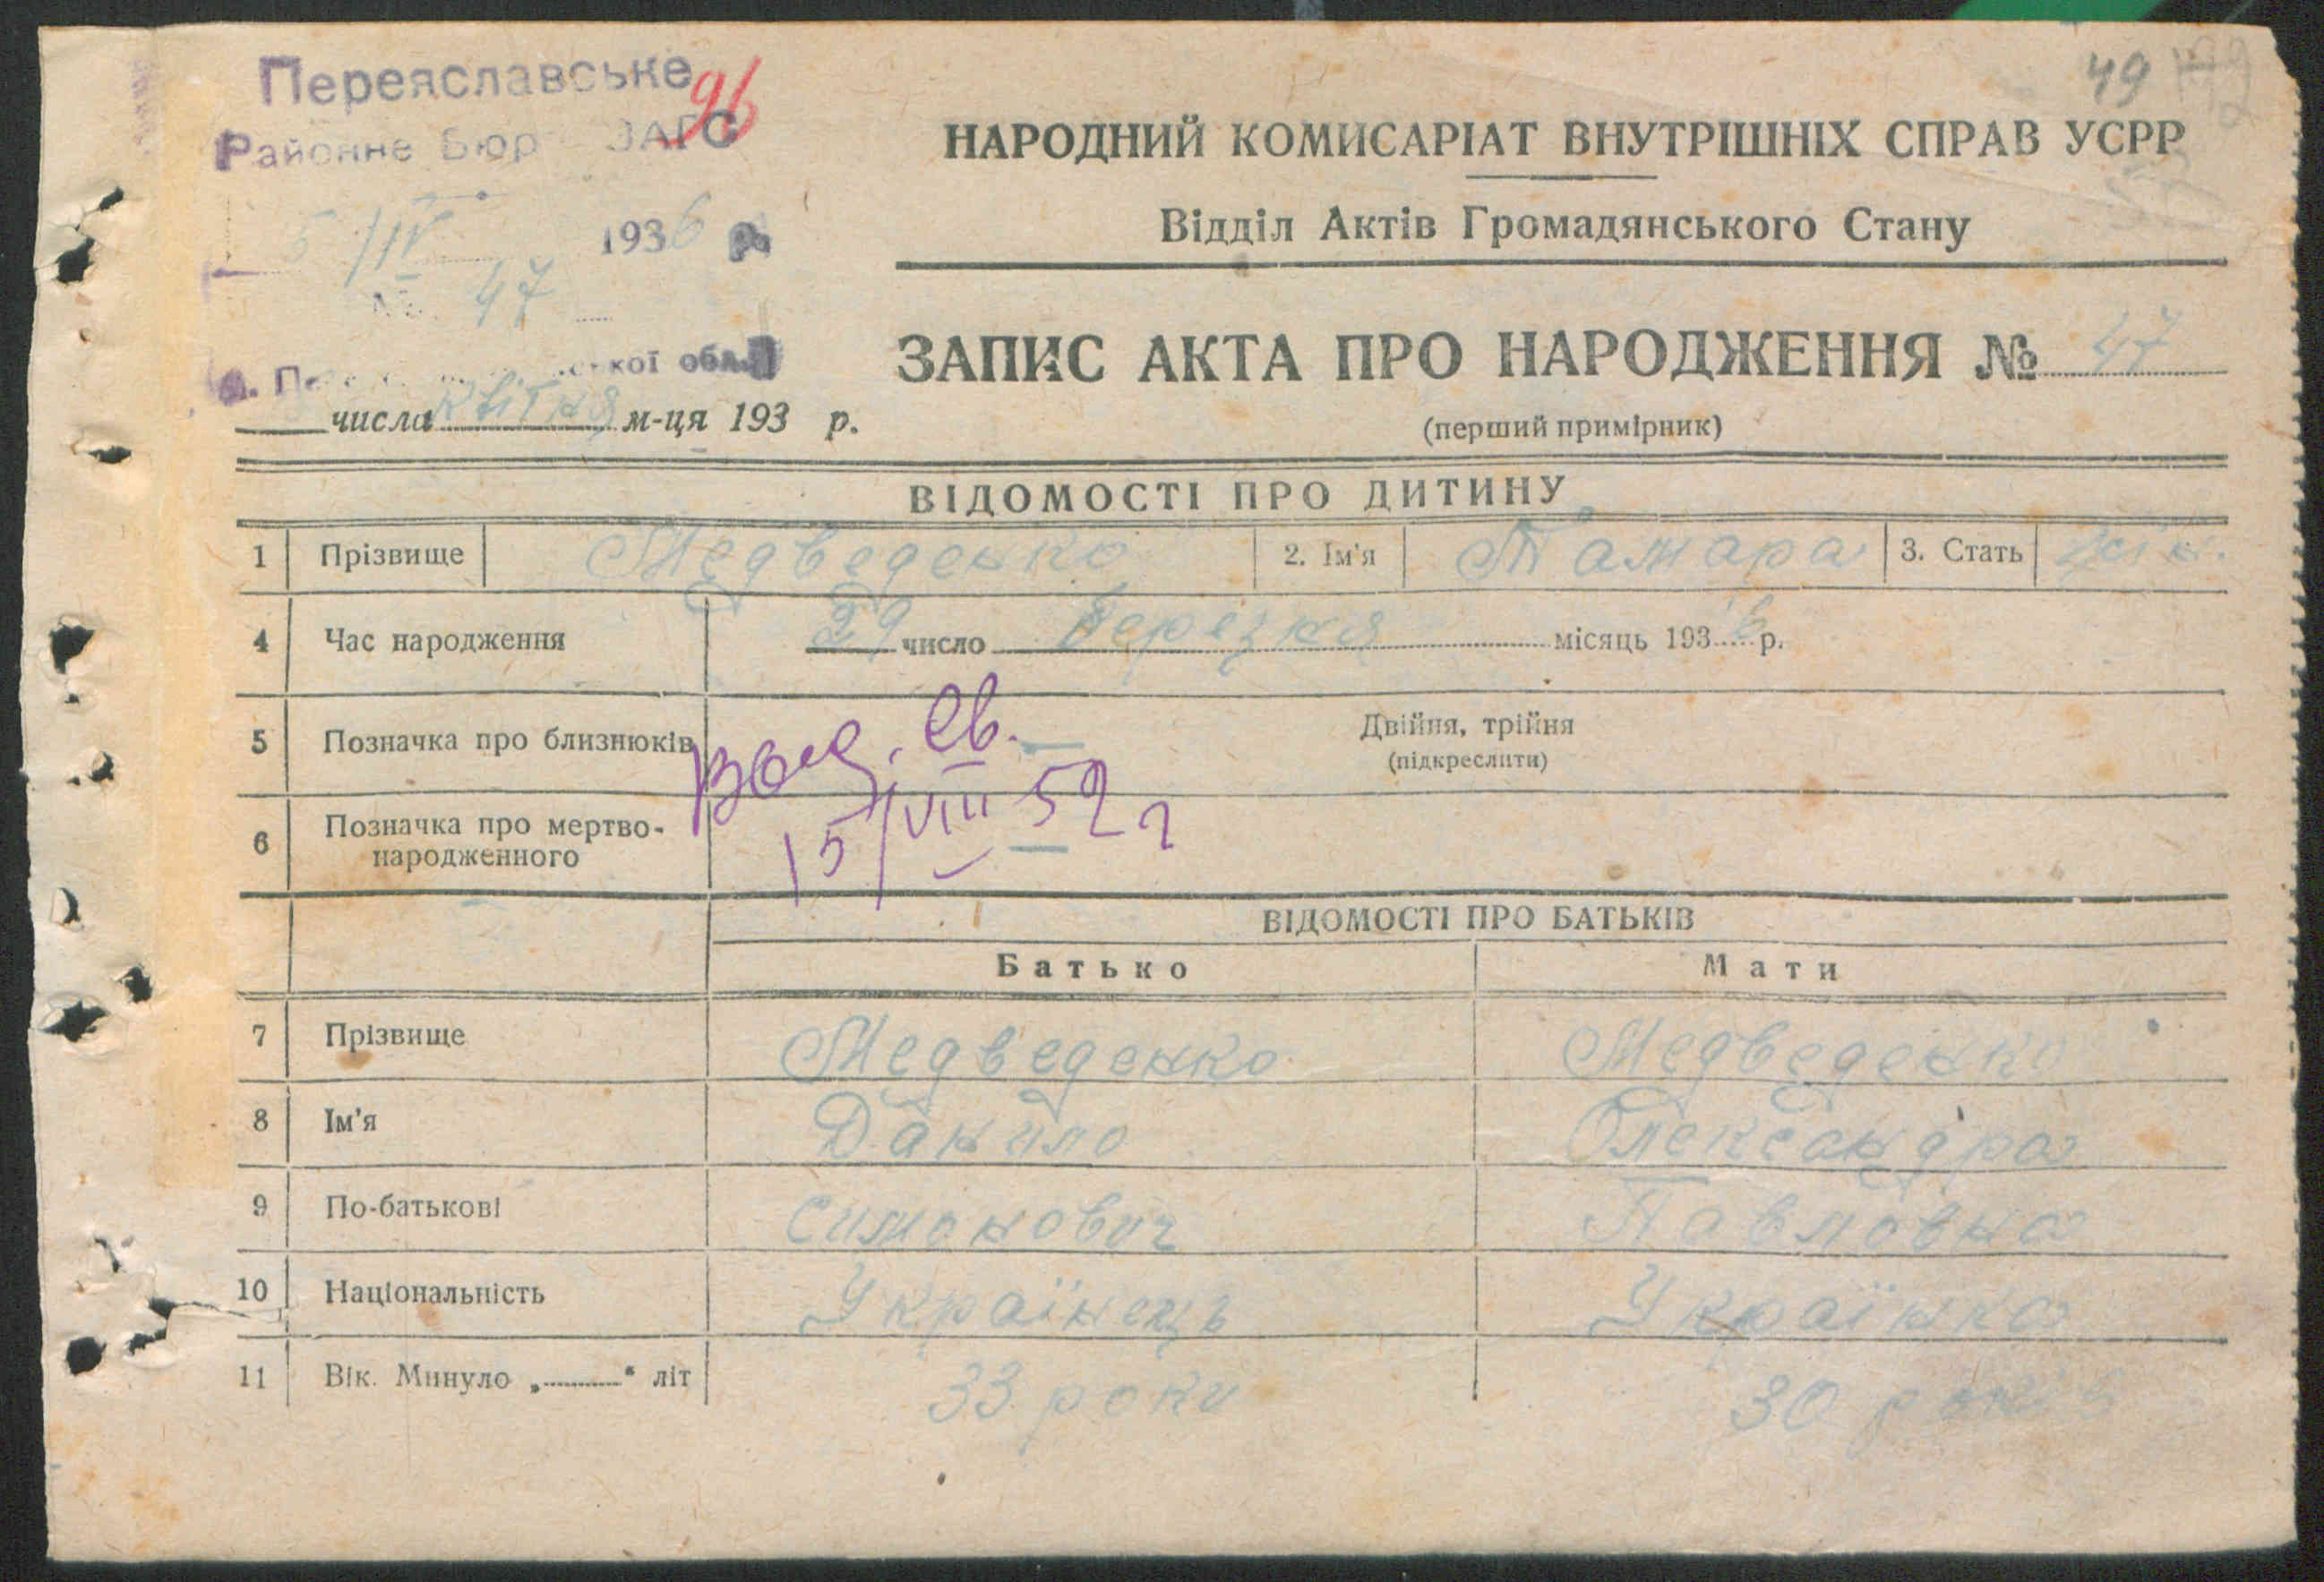 Переяславське
96
49
Районне Бюро ЗАГС
5/IV 1936 р.
№ 47
кої обл.
числа квітня м-ця 193 р.
НАРОДНИЙ КОМИСАРІАТ ВНУТРІШНІХ СПРАВ УСРР
Відділ Актів Громадянського Стану
ЗАПИС АКТА ПРО НАРОДЖЕННЯ № 47
(перший примірник)
ВІДОМОСТІ ПРО ДИТИНУ
1 Прізвище Медведенко 2. Ім'я Тамара 3. Стать жін.
4 Час народження 29 число березня місяць 1936 р.
5 Позначка про близнюків Двійня, трійня
(підкреслити)
св.
15/VIII 52 г
6 Позначка про мертво-
народженного
ВІДОМОСТІ ПРО БАТЬКІВ
Батько Мати
7 Прізвище Медведенко Медведенко
8 Ім'я Данило Олександра
9 По-батькові Симонович Павловна
10 Національність Українець Українка
11 Вік. Минуло „ “ літ 33 роки 30 років